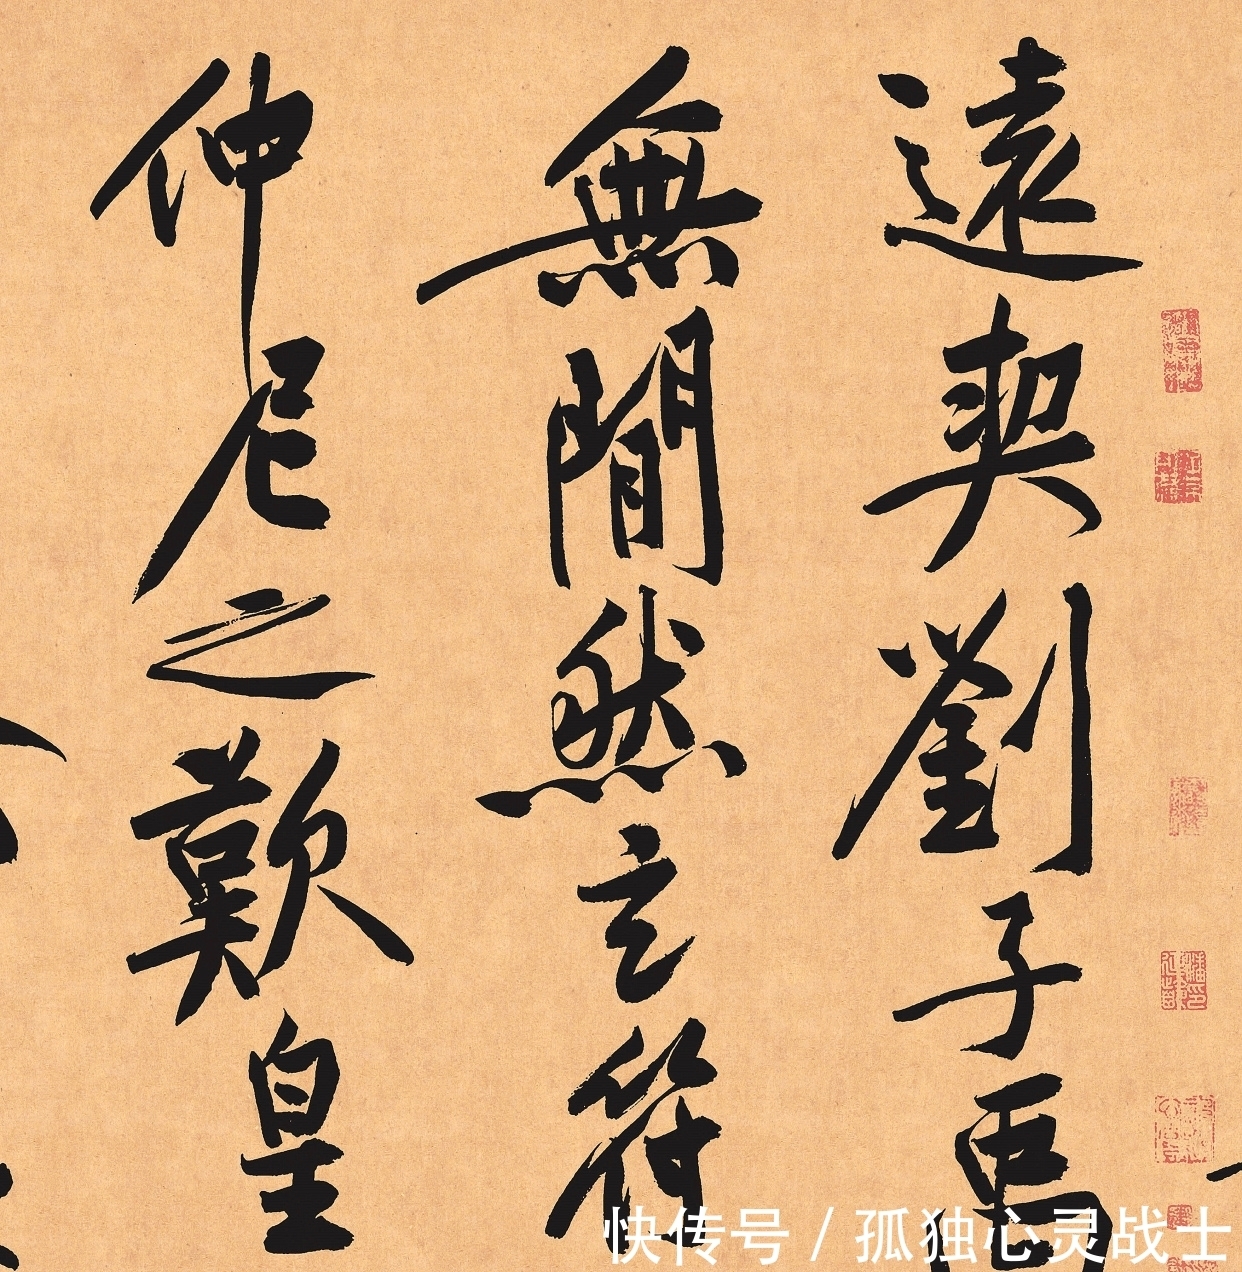 遠契劉子禹
無間然玄符
仲尼之歎皇
快传号 / 孤独心灵战士